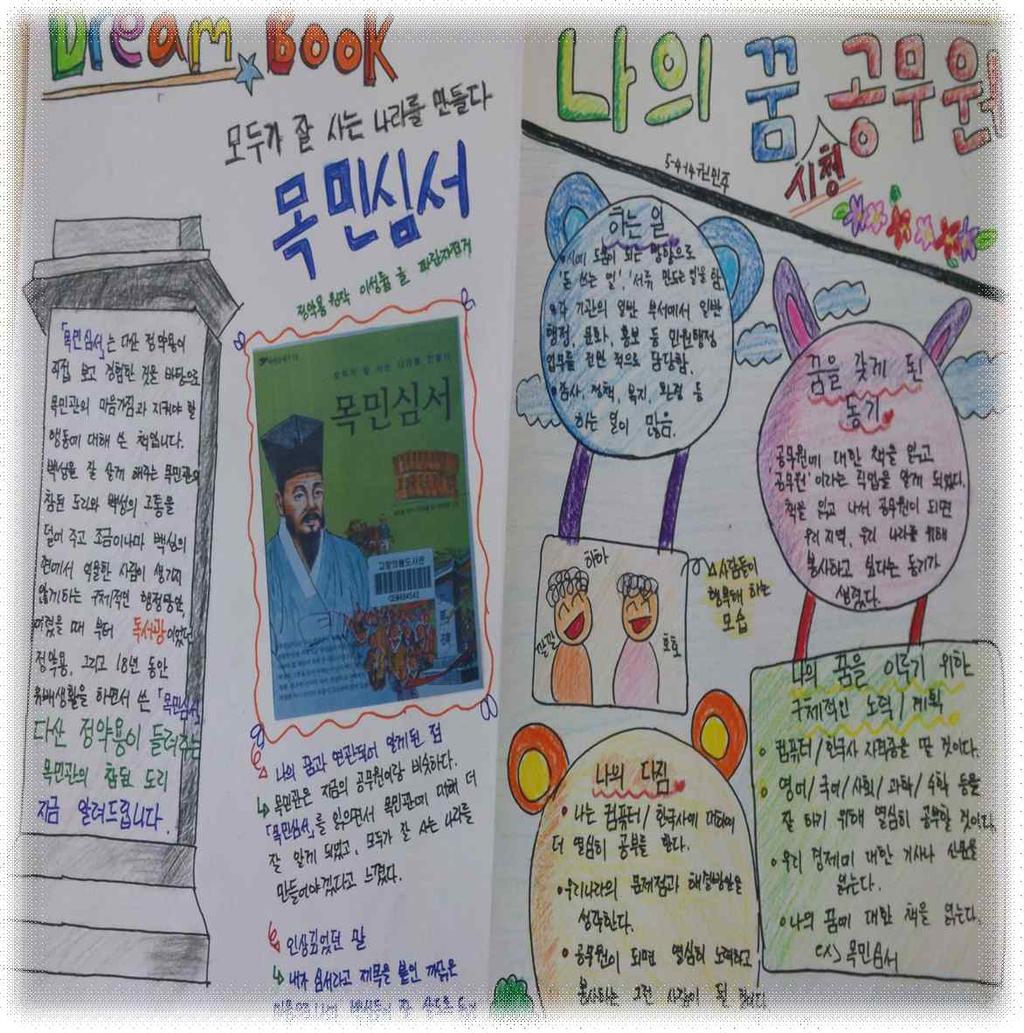 Dream Book
모두가 잘 사는 나라를 만들다
목민심서
정약용 원작 이성률 글 파란자전거
「목민심서」는 다산 정약용이
직접 보고 경험한 것을 바탕으로
목민관의 마음가짐과 지켜야 할
행동에 대해 쓴 책입니다.
백성을 잘 살게 해주는 목민관의
참된 도리와 백성의 고통을
덜어 주고 조금이나마 백성의
편에서 억울한 사람이 생기지
않게하는 구체적인 행정방안,
어렸을 때 부터 독서광이었던
정약용, 그리고 18년 동안
유배생활을 하면서 쓴 「목민심서」
다산 정약용이 들려주는
목민관의 참된 도리
지금 알려드립니다.
모두가 잘 사는 나라를 만들다
목민심서
고창의룡도서관
나의 꿈과 연관되어 알게된 점
목민관은 지금의 공무원이랑 비슷하다.
「목민심서」를 읽으면서 목민관에 대해 더
잘 알게 되었고, 모두가 잘 사는 나라를
만들어야겠다고 느꼈다.
인상깊었던 말
내가 심서라고 제목을 붙인 까닭은
나의 꿈 시청 공무원
5-4-14 권민주
하는 일
시에 도움이 되는 방향으로
'돈 쓰는 일', '서류 만드는 일'을 함.
각 기관의 일반 부서에서 일반
행정, 문화, 홍보 등 민원행정
업무를 전면적으로 담당함.
감사, 정책, 복지, 환경 등
하는 일이 많음.
꿈을 갖게 된
동기
공무원에 대한 책을 읽고
'공무원'이라는 직업을 알게 되었다.
책을 읽고 나서 공무원이 되면
우리 지역, 우리 나라를 위해
봉사하고 싶다는 동기가
생겼다.
하하
깔깔
호호
△사람들이
행복해 하는
모습
나의 다짐
• 나는 컴퓨터/한국사에 대하여
더 열심히 공부를 한다.
• 우리나라의 문제점과 해결방안을
생각한다.
• 공무원이 되면 열심히 노력하고
봉사하는 그런 사람이 될 것이다
나의 꿈을 이루기 위한
구체적인 노력/계획
• 컴퓨터/한국사 자격증을 딸 것이다.
• 영어/국어/사회/과학/수학 등을
잘 하기 위해 열심히 공부할 것이다.
• 우리 경제에 대한 기사나 신문을
읽는다.
• 나의 꿈에 대한 책을 읽는다.
목민심서